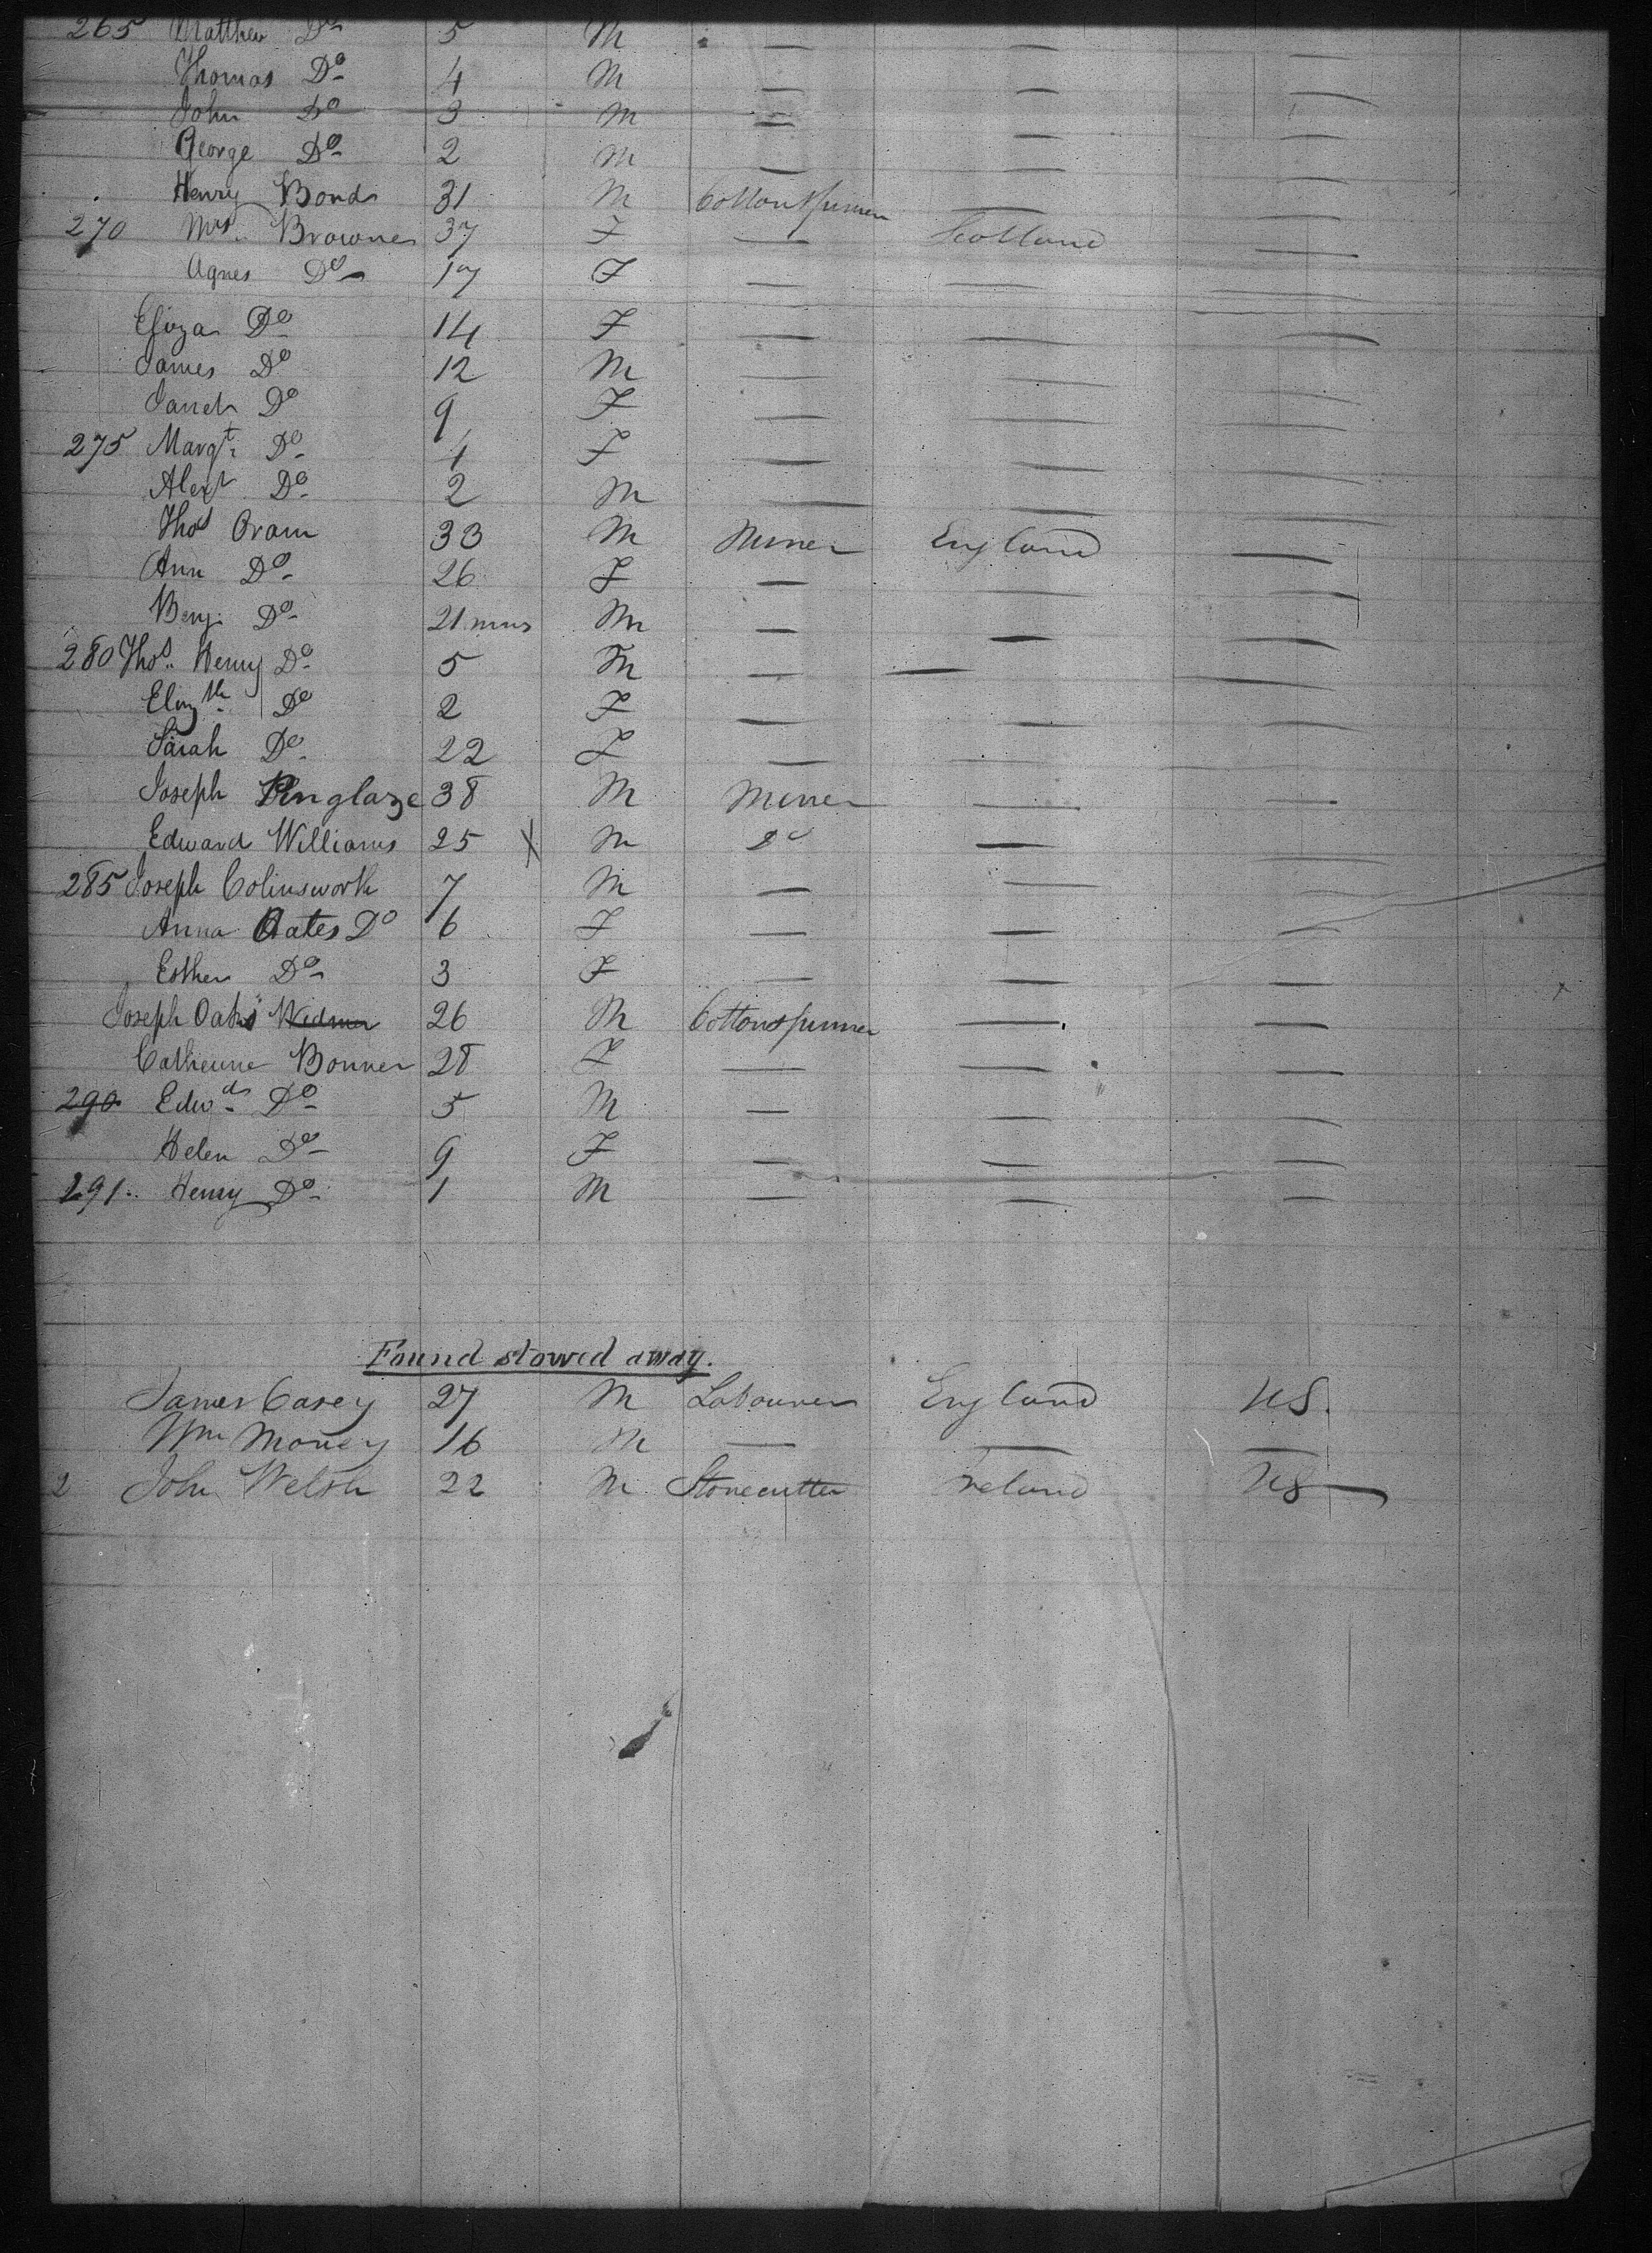 265 Matthew Do 5 M — — —
Thomas Do 4 M — — —
John Do 3 M — — —
George Do 2 M — — —
Henry Bonds 31 M Cottonspinner — —
270 Mrs. Browne 37 F — Scotland —
Agnes Do 17 F — — —
Eliza Do 14 F — — —
James Do 12 M — — —
Janet Do 9 F — — —
275 Margt Do 4 F — — —
Alexr Do 2 M — — —
Thos Oram 33 M Miner England —
Ann Do 26 F — — —
Benj. Do 21 mns M — — —
280 Thos. Henry Do 5 M — — —
Elizth Do 2 F — — —
Sarah Do 22 F — — —
Joseph Penglaze 38 M Miner — —
Edward Williams 25 X M Do — —
285 Joseph Colinsworth 7 M — — —
Anna Oates Do 6 F — — —
Esther Do 3 F — — —
Joseph Oates 26 M Cottonspinner — —
Catherine Bonner 28 F — — —
290 Edwd Do 5 M — — —
Helen Do 9 F — — —
291 Henry Do 1 M — — —
Found stowed away.
James Casey 27 M Labourer England US.
Wm Money 16 M — — —
2 John Welsh 22 M Stonecutter Ireland US